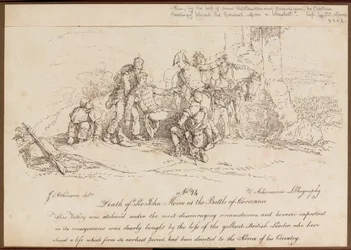 Then, by the help of some Highlanders and Guardsmen, he Captain
Hardinge placed the General upon a blanket.
J. Atkinson delt.
No. 14
R. Ackermann's Lithography
Death of Sir John Moore at the Battle of Corunna
This Victory was atchieved under the most discouraging circumstances and however important
in its consequences was dearly bought by the loss of the gallant British Leader who here
closed a life which from its earliest period had been devoted to the Arms of his Country.